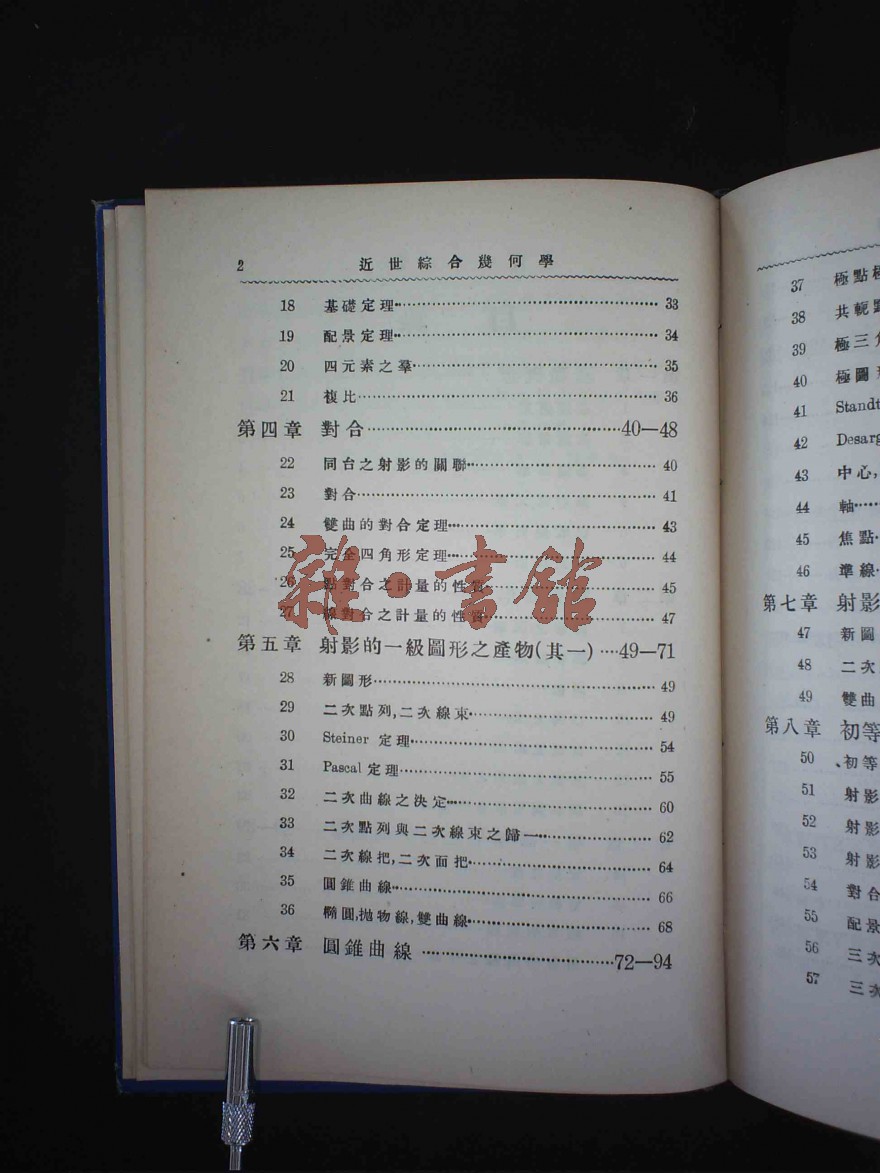 2 近世綜合幾何學
18 基礎定理 33
19 配景定理 34
20 四元素之羣 35
21 複比 36
第四章 對合 40—48
22 同台之射影的關聯 40
23 對合 41
24 雙曲的對合定理 43
25 完全四角形定理 44
26 點對合之計量的性質 45
27 線對合之計量的性質 47
第五章 射影的一級圖形之產物(其一) 49—71
28 新圖形 49
29 二次點列,二次線束 49
30 Steiner 定理 54
31 Pascal 定理 55
32 二次曲線之決定 60
33 二次點列與二次線束之歸一 62
34 二次線把,二次面把 64
35 圓錐曲線 66
36 橢圓,拋物線,雙曲線 68
第六章 圓錐曲線 72—94
雜·書館
37 極點
38 共軛
39 極三
40 極圖
41
42
43 中心,
44 軸
45 焦點
46 準線
第七章 射影
47 新圖
48 二次
49 雙曲
第八章 初等
50 初等
51 射影
52 射影
53 射影
54 對合
55 配景
56 三次
57 三次